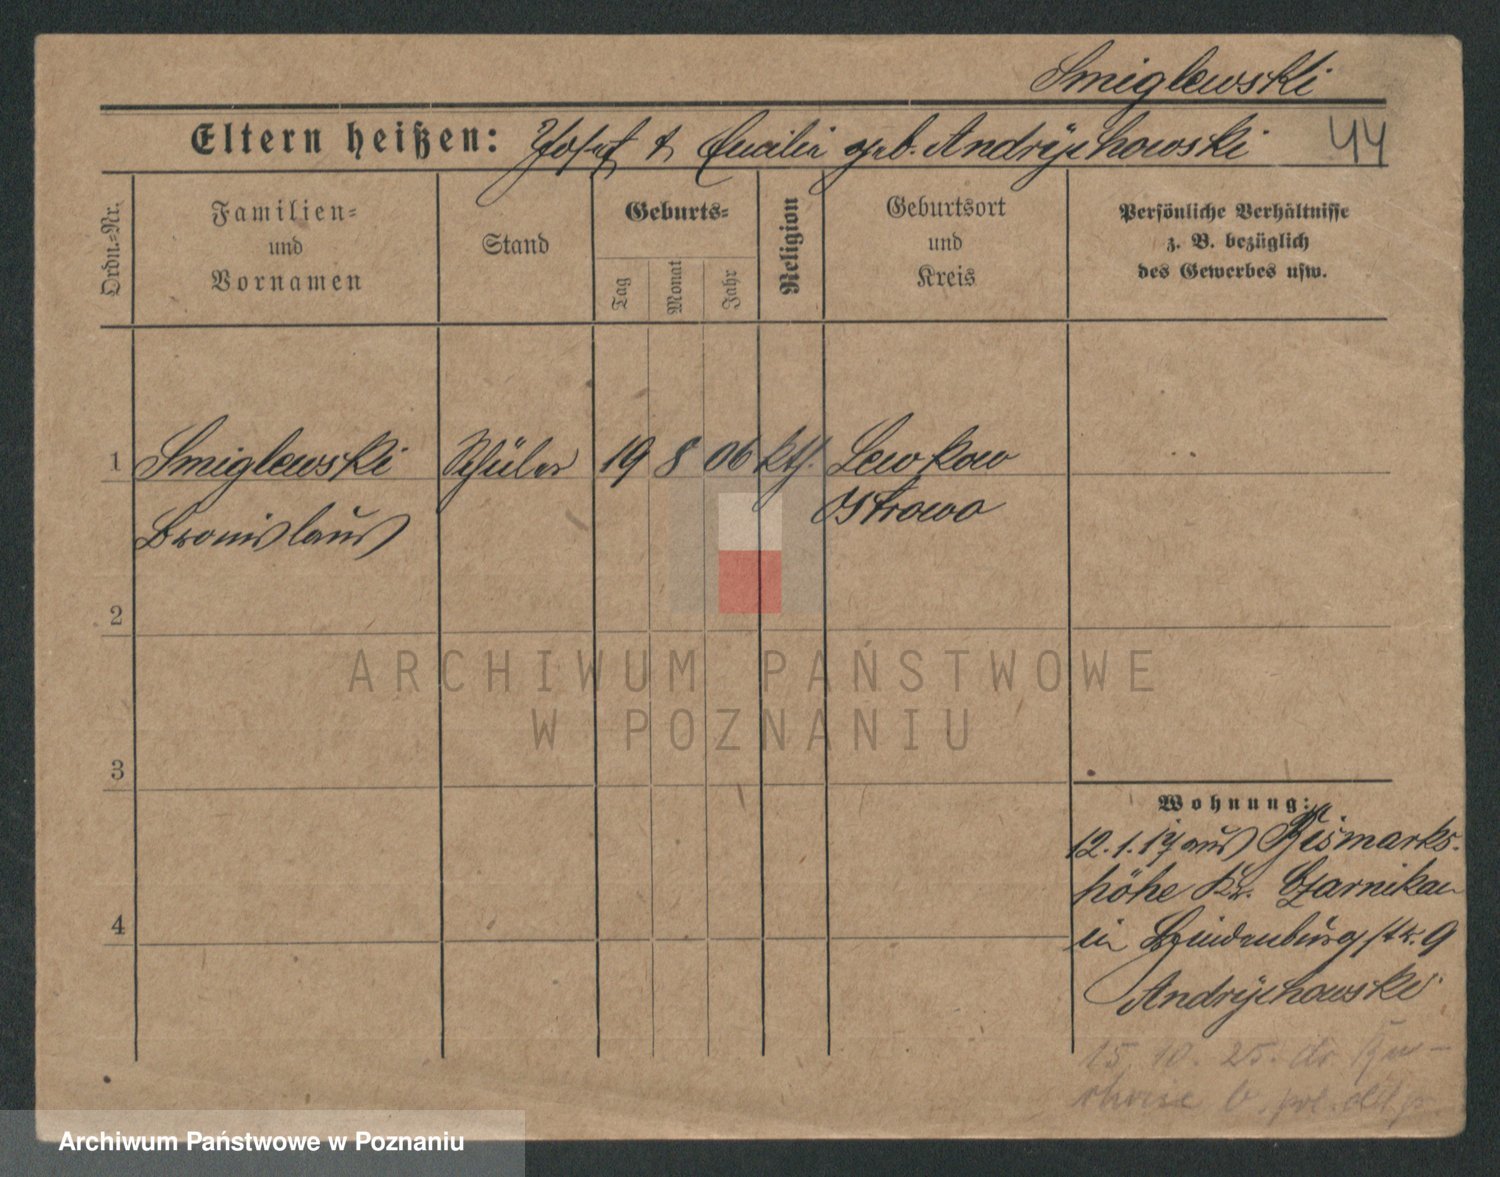 Smiglewski
Eltern heißen: Josef & Cecilia geb. Andrÿchowski 44
Ordn.=Nr.
Familien=
und
Vornamen
Stand
Geburts=
Tag
Monat
Jahr
Religion
Geburtsort
und
Kreis
Persönliche Verhältnisse
z. B. bezüglich
des Gewerbes usw.
1 Smiglewski Schüler 19 8 06 kth. Lewkow
Bronislaus Ostrowo
2
3
4
Wohnung:
12.1.17 aus Bismarks-
höhe Kr. Czarnikau
in Hindenburgstr. 9
Andrÿchowski
15. 10. 25.
ARCHIWUM PAŃSTWOWE
W POZNANIU
Archiwum Państwowe w Poznaniu